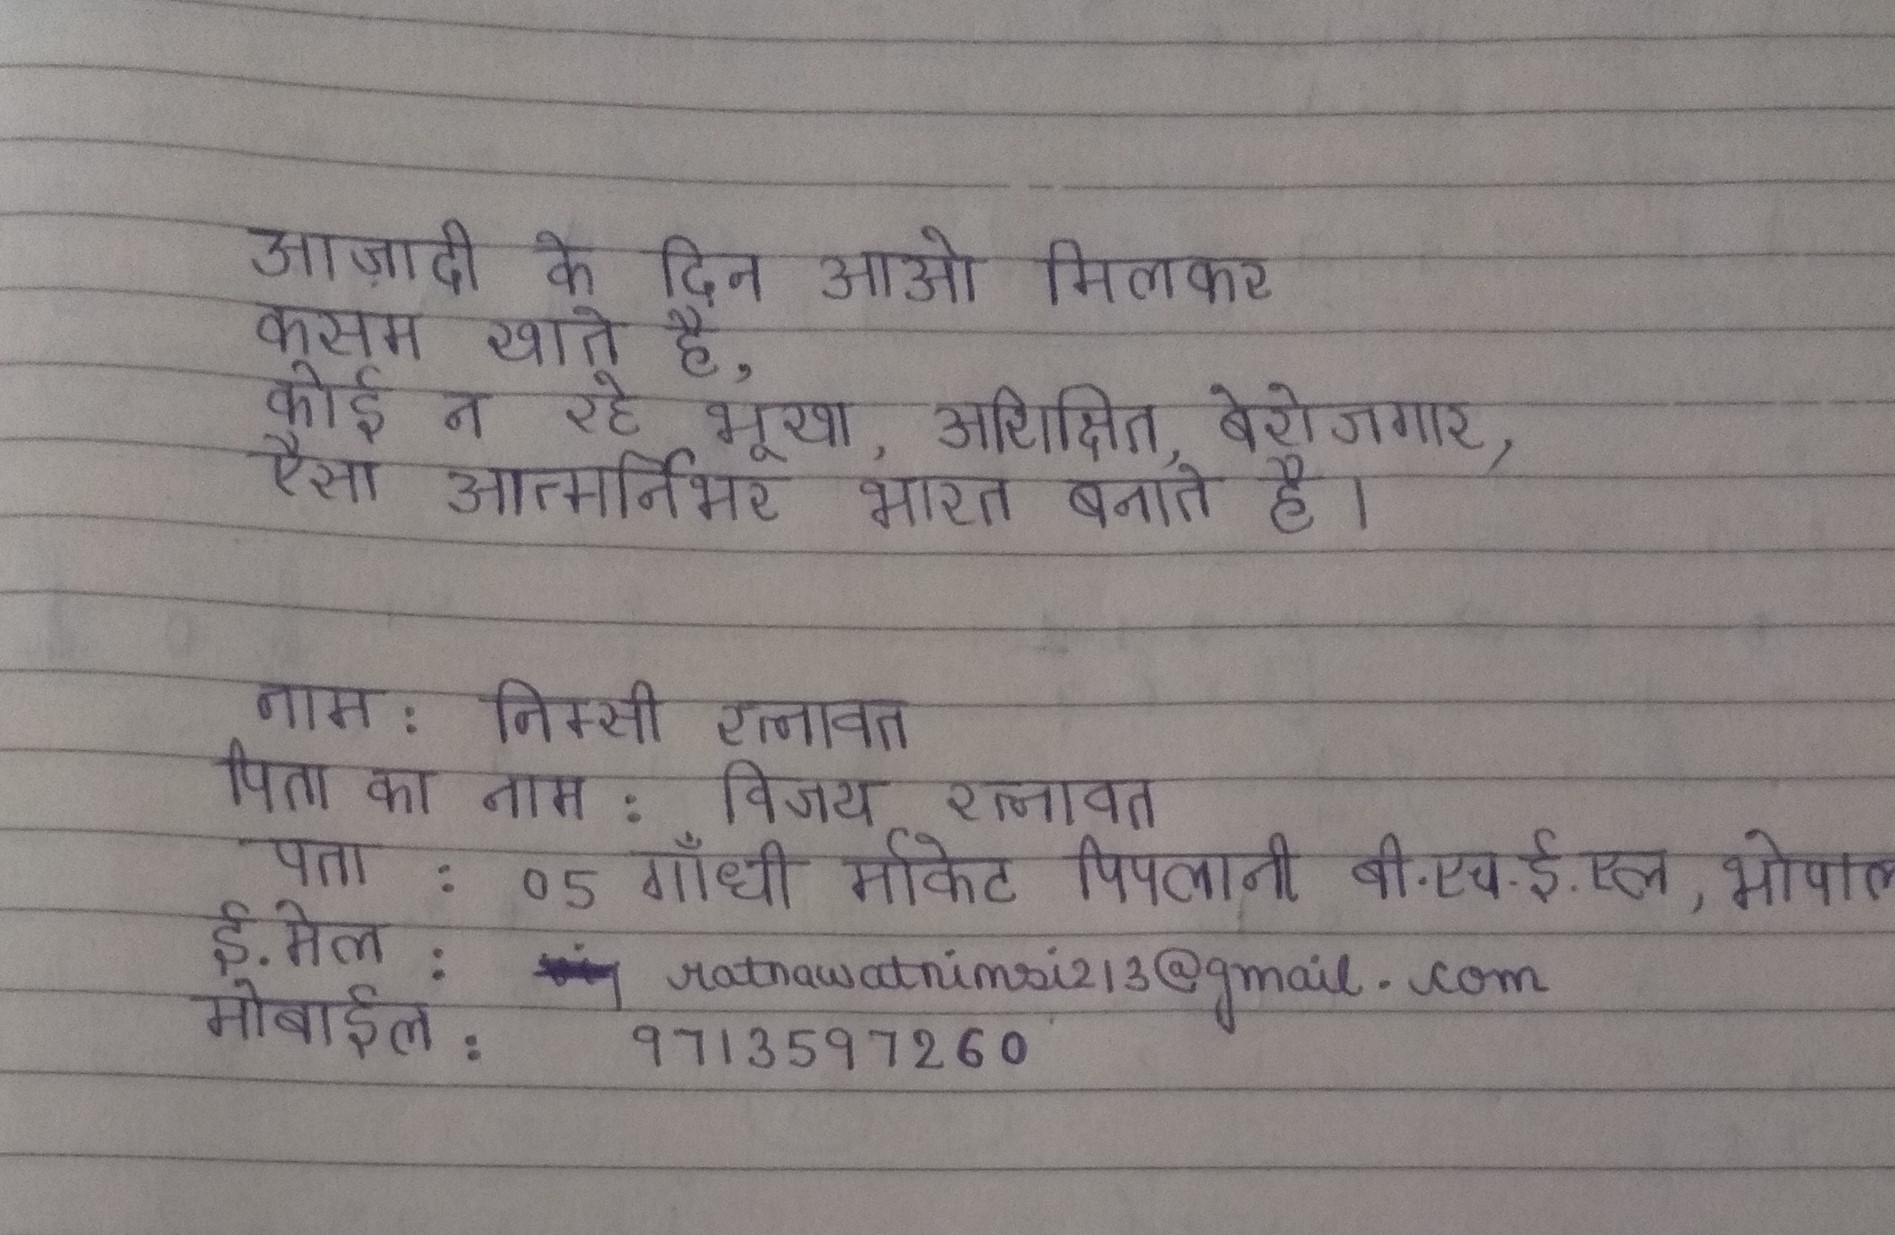 आज़ादी के दिन आओ मिलकर
कसम खाते है,
कोई न रहे भूखा, अशिक्षित, बेरोजगार,
ऐसा आत्मर्निभर भारत बनाते है।
नाम : निम्सी रत्नावत
पिता का नाम : विजय रत्नावत
पता : 05 गाँधी र्माकेट पिपलानी बी.एच.ई.एल, भोपाल
ई.मेल : ratnawatnimsi213@gmail.com
मोबाईल : 9713597260